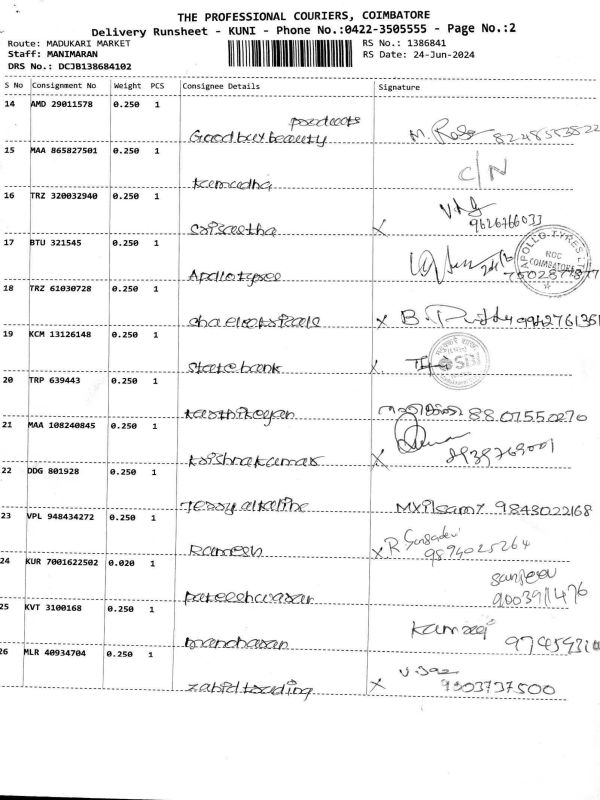 THE PROFESSIONAL COURIERS, COIMBATORE
Delivery Runsheet - KUNI - Phone No.:0422-3505555 - Page No.:2
Route: MADUKARI MARKET RS No.: 1386841
Staff: MANIMARAN RS Date: 24-Jun-2024
DRS No.: DCJB138684102
S No Consignment No Weight PCS Consignee Details Signature
14 AMD 29011578 0.250 1
products
Goodbuybeauty M. Rose 8248553822
15 MAA 865827501 0.250 1
C/N
kumudha
16 TRZ 320032940 0.250 1
9626766033
Srisastha X
17 BTU 321545 0.250 1
APOLLO TYRES LTD
ROC
COIMBATORE
Apollotyree
18 TRZ 61030728 0.250 1
X B. 
19 KCM 13126148 0.250 1
SBI
statebank X
20 TRP 639443 0.250 1
karthikeyan 8807550270
21 MAA 108240845 0.250 1
krishnakumar X 8939769001
22 DDG 801928 0.250 1
Jessyalkaline Mxilsamy 9843022168
23 VPL 948434272 0.250 1
Ramesh X R 9894025264
24 KUR 7001622502 0.020 1
Sanjeev
Pateeshwarar 9003911476
25 KVT 3100168 0.250 1
manoharan 9745931
26 MLR 40934704 0.250 1
zabidtrading X 9303737500